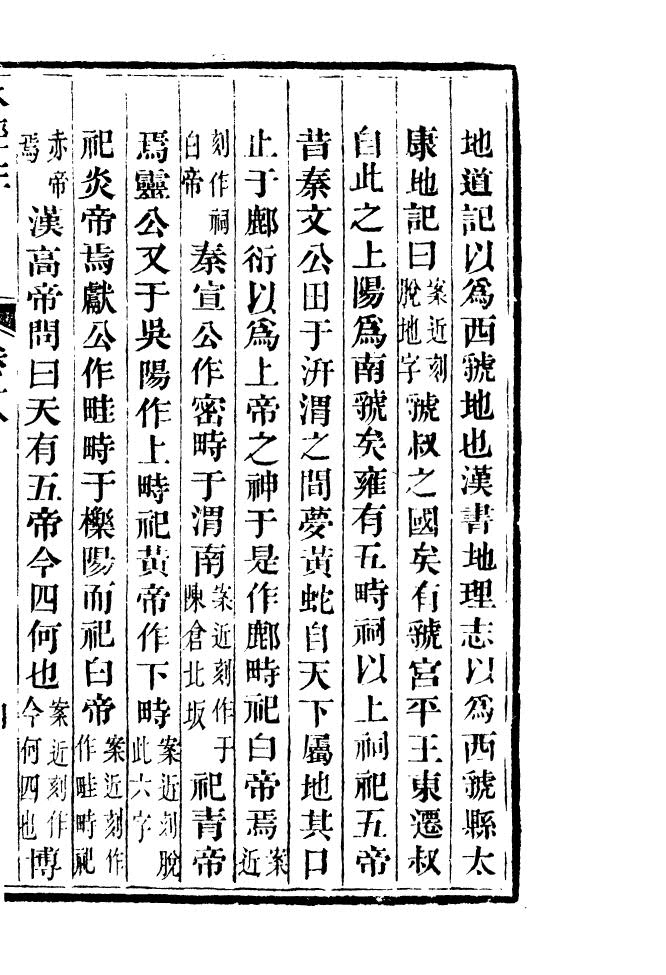 地道記以爲西虢地也漢書地理志以爲西虢縣太
康地記曰案近刻脫地字虢叔之國矣有虢宮平王東遷叔
自此之上陽爲南虢矣雍有五畤祠以上祠祀五帝
昔秦文公田于汧渭之間夢黃蛇自天下屬地其口
止于鄜衍以爲上帝之神于是作鄜畤祀白帝焉案近
刻作祠白帝秦宣公作密畤于渭南案近刻作于陳倉北坂祀青帝
焉靈公又于吳陽作上畤祀黃帝作下畤案近刻脫此六字
祀炎帝焉獻公作畦畤于櫟陽而祀白帝案近刻作作畦畤祀
赤帝焉漢高帝問曰天有五帝今四何也案近刻作今何四也博
水經注